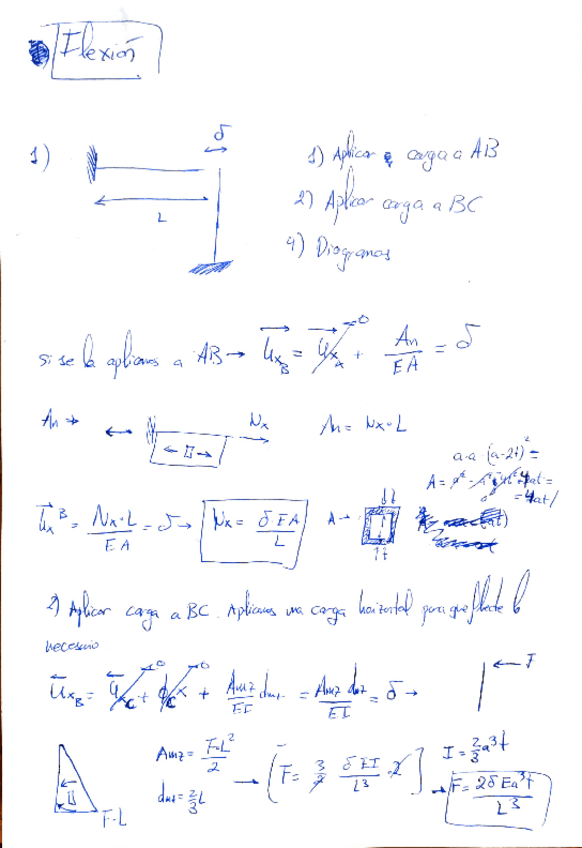 Flexión
1)
δ
L
1) Aplicar carga a AB
2) Aplicar carga a BC
4) Diagramas
si se la aplicamos a AB → u_xB = u_xA + An/EA = δ
0
An →
Nx
An = Nx·L
a·a-(a-2t)² =
4at =
= 4at/
u_x^B = Nx·L/EA = δ → Nx = δEA/L
A →
t
t
2) Aplicar carga a BC. Aplicamos una carga horizontal para que flecte lo
necesario
u_xB = u_xC + ϕ_C x + Amz/EI dmz = Amz dmz/EI = δ →
0
0
← F
Amz = F·L²/2
dmz = 2/3 L
F·L
→ [F = 3/2 δEI/L³ · 2]
I = 2/3 a³t
→ F = 2δEa³t/L³